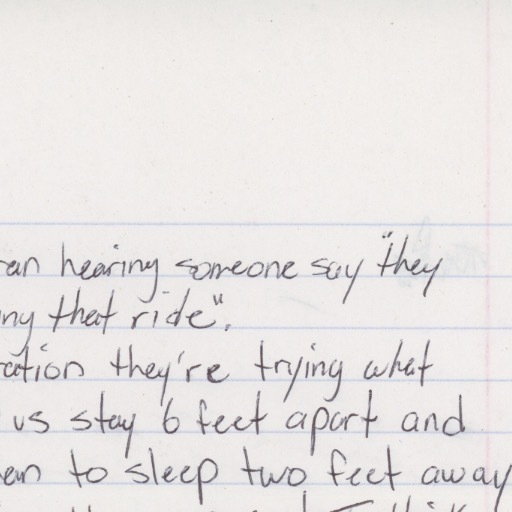 hearing someone say "they
that ride".
they're trying what
us stay 6 feet apart and
to sleep two feet away